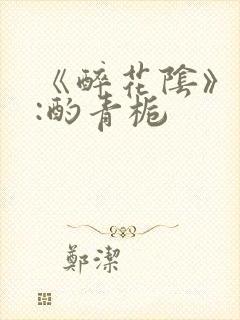 《醉花陰》
:酌青梔
鄭潔